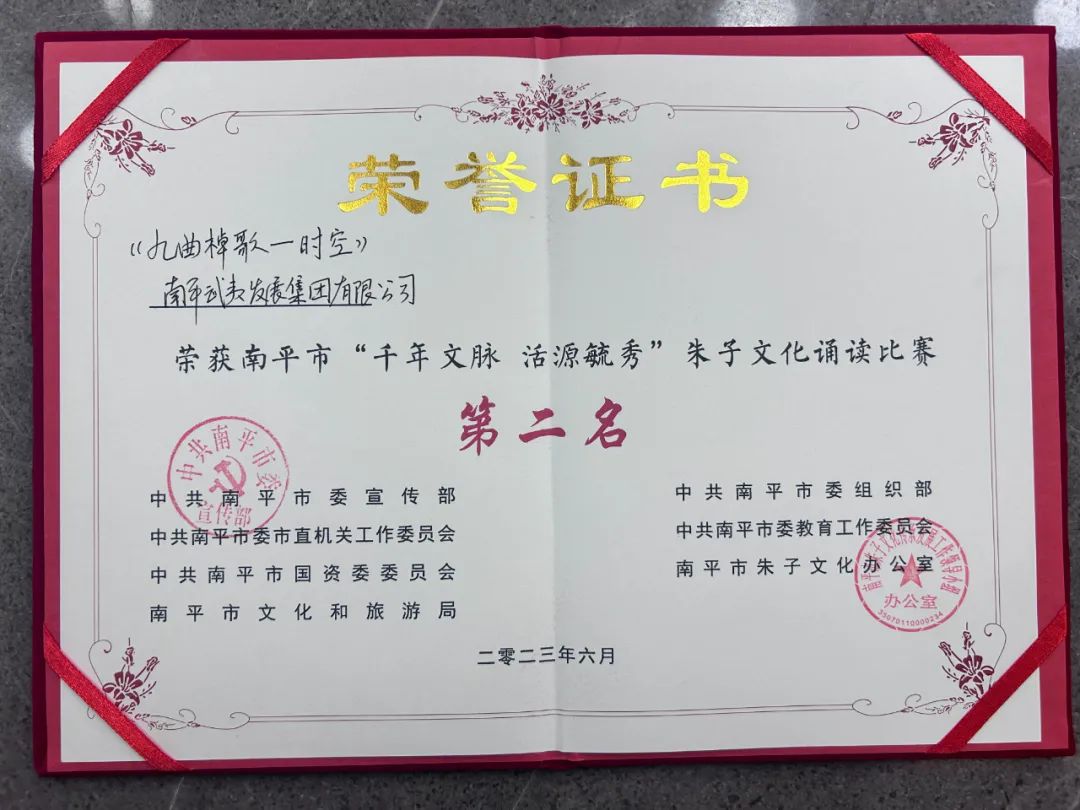 荣誉证书
《九曲棹歌一时空》
南平武夷发展集团有限公司
荣获南平市“千年文脉 活源毓秀”朱子文化诵读比赛
第二名
中共南平市委
宣传部
中共南平市委宣传部
中共南平市委市直机关工作委员会
中共南平市国资委委员会
南平市文化和旅游局
中共南平市委组织部
中共南平市委教育工作委员会
南平市朱子文化办公室
办公室
35070110000234
二零二三年六月